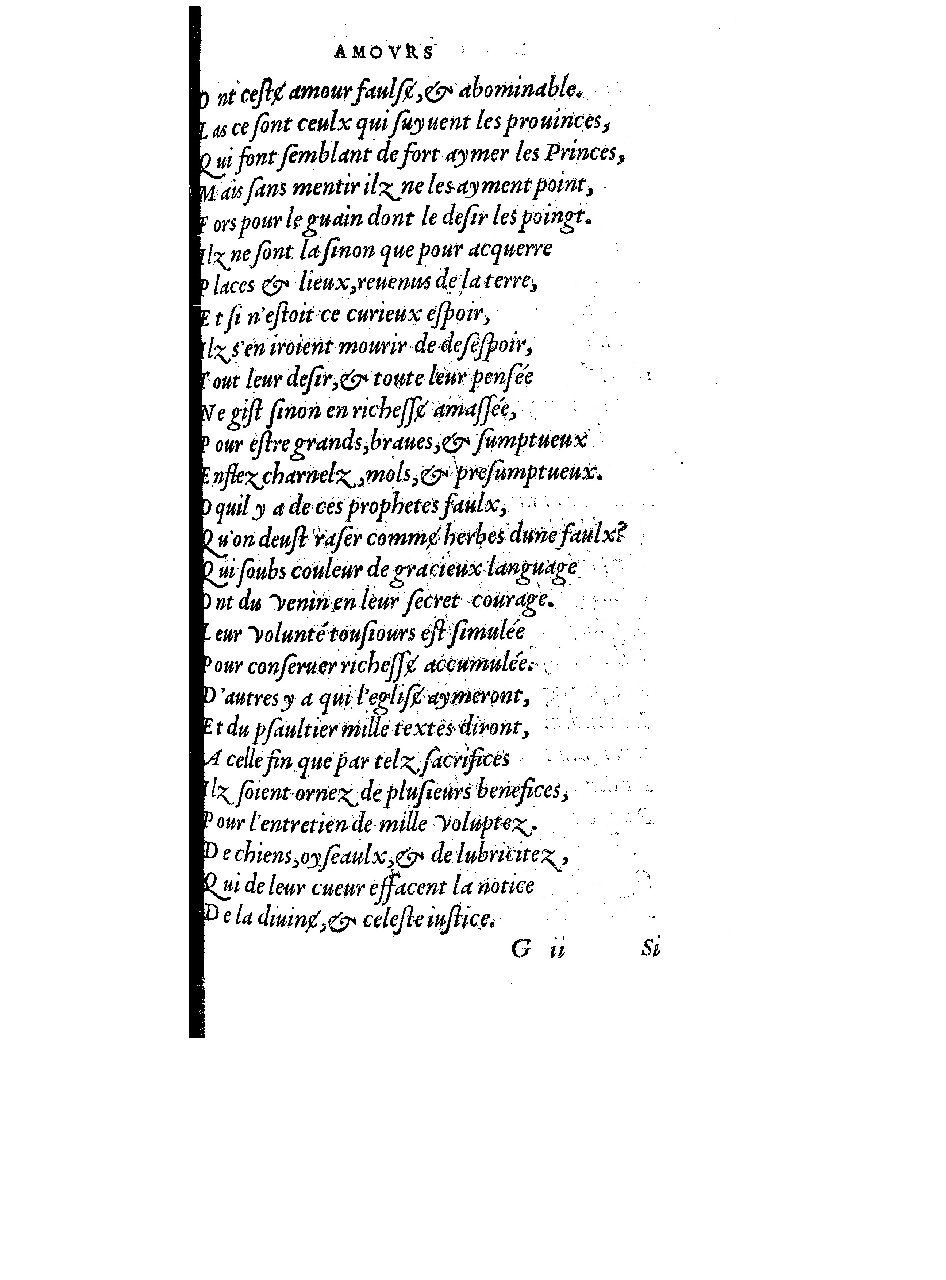 AMOVRS
Ont ceſtɇ amour faulſɇ, & abominable.
Las ce ſont ceulx qui ſuyuent les prouinces,
Qui font ſemblant de fort aymer les Princes,
Mais ſans mentir ilz ne les ayment point,
Fors pour le guain dont le deſir les poingt.
Ilz ne ſont la ſinon que pour acquerre
Places & lieux, reuenus de la terre,
Et ſi n'eſtoit ce curieux eſpoir,
Ilz s'en iroient mourir de deſeſpoir,
Tout leur deſir, & toute leur penſée
Ne giſt ſinon en richeſſɇ amaſſée,
Pour eſtre grands, braues, & ſumptueux
Enflez charnelz, mols, & preſumptueux.
O quil y a de ces prophetes faulx,
Qu'on deuſt raſer commɇ herbes dune faulx?
Qui ſoubs couleur de gracieux language
Ont du venin en leur ſecret courage.
Leur volunté touſiours eſt ſimulée
Pour conſeruer richeſſɇ accumulée.
D'autres y a qui l'egliſɇ aymeront,
Et du pſaultier mille textes diront,
A celle fin que par telz ſacrifices
Ilz ſoient ornez de pluſieurs benefices,
Pour l'entretien de mille voluptez.
De chiens, oyſeaulx, & de lubricitez,
Qui de leur cueur effacent la notice
De la diuinɇ, & celeſte iuſtice.
G ii Si